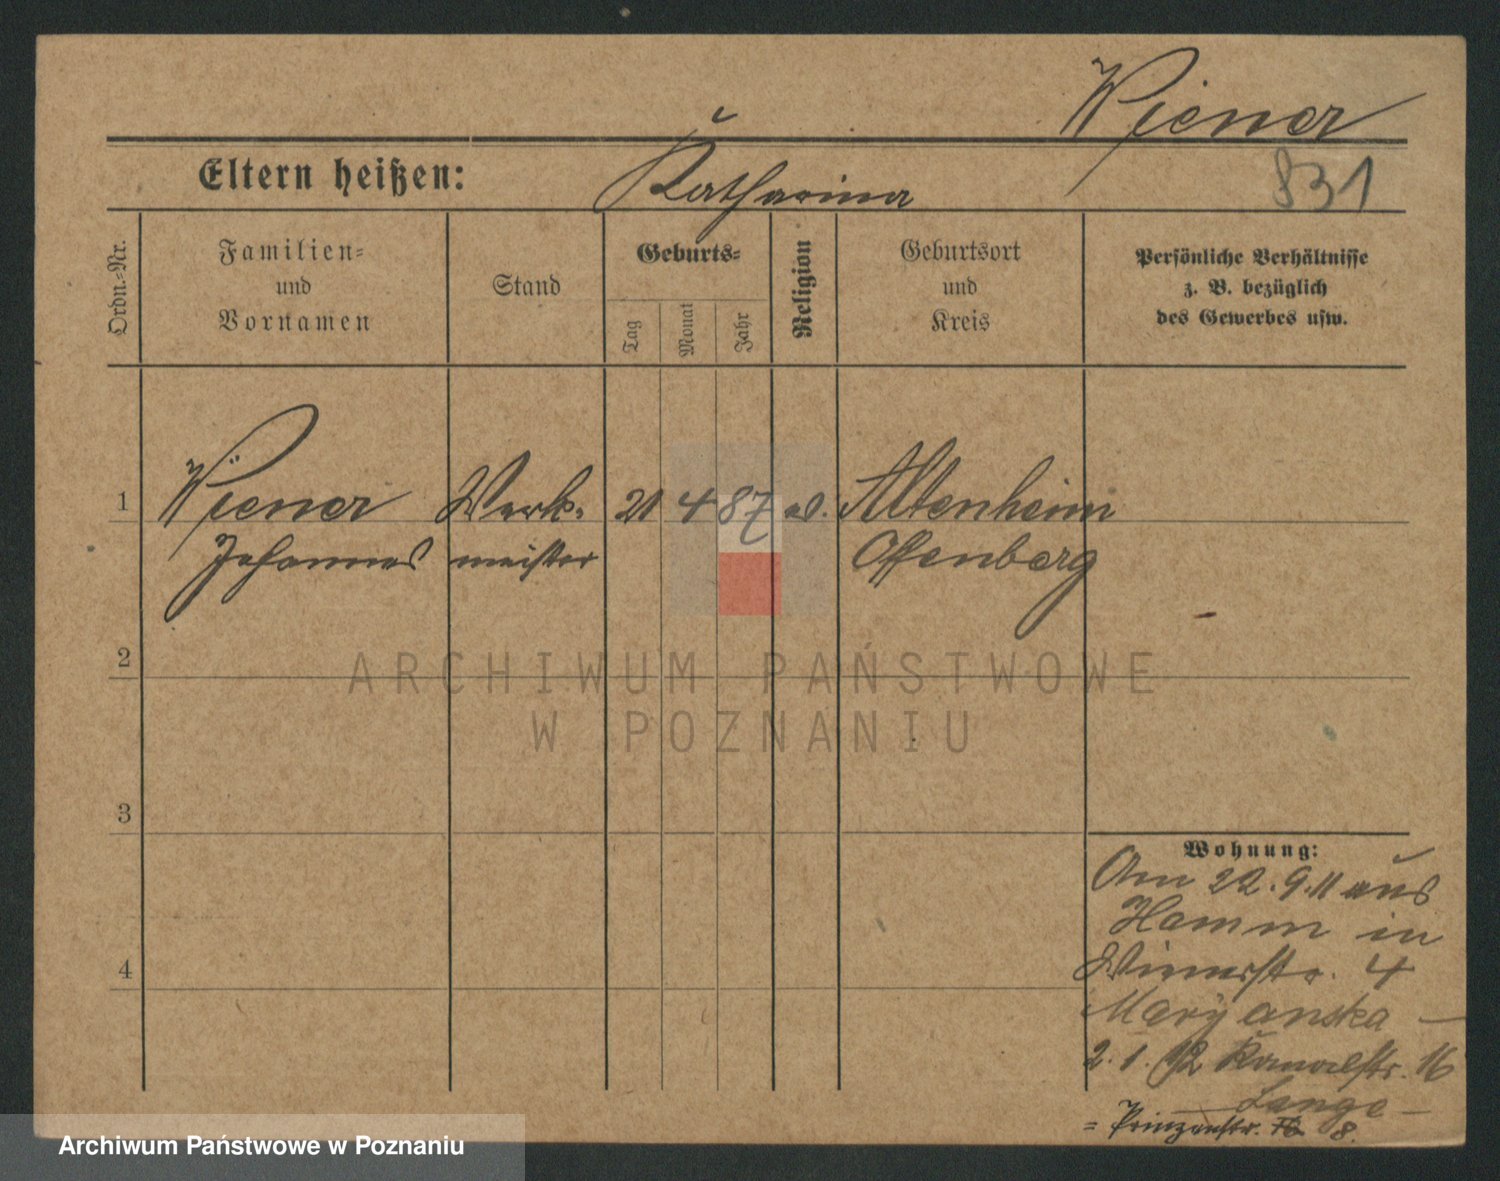 Wiener
Eltern heißen: Katharina 831
Ordn.-Nr.
Familien-
und
Vornamen
Stand
Geburts-
Tag
Monat
Jahr
Religion
Geburtsort
und
Kreis
Persönliche Verhältnisse
z. B. bezüglich
des Gewerbes usw.
1 Wiener Werk- 21 4 87 Altenheim
Johannes meister Offenberg
2
ARCHIWUM PAŃSTWOWE
W POZNANIU
3
Wohnung:
Am 22.9.11 aus
Hamm in
4
Maryanska —
2.1.12 Kanalstr. 16
— Lange —
= Prinzenstr. 8.
Archiwum Państwowe w Poznaniu